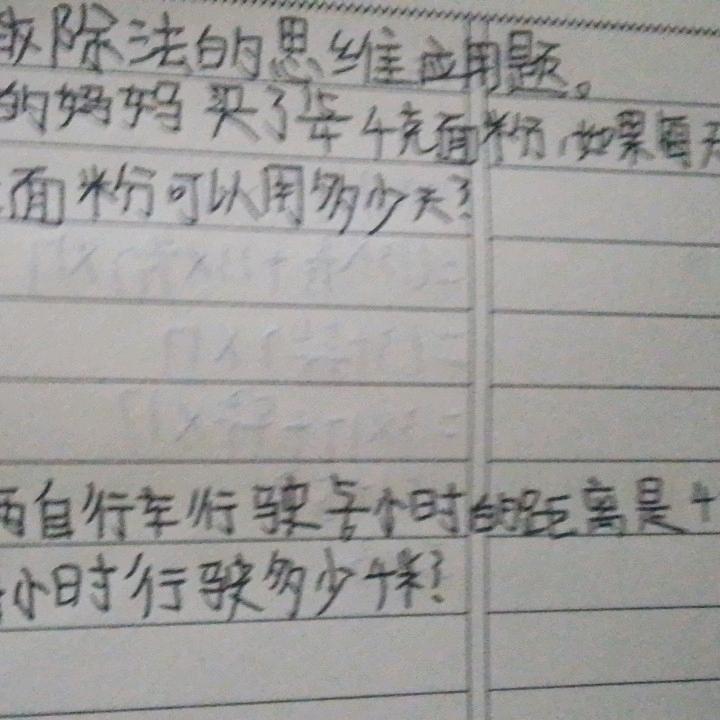 除法的思维应用题。
的妈妈买了千克面粉,如果每天
面粉可以用多少天?
自行车行驶小时的距离是
小时行驶多少千米?